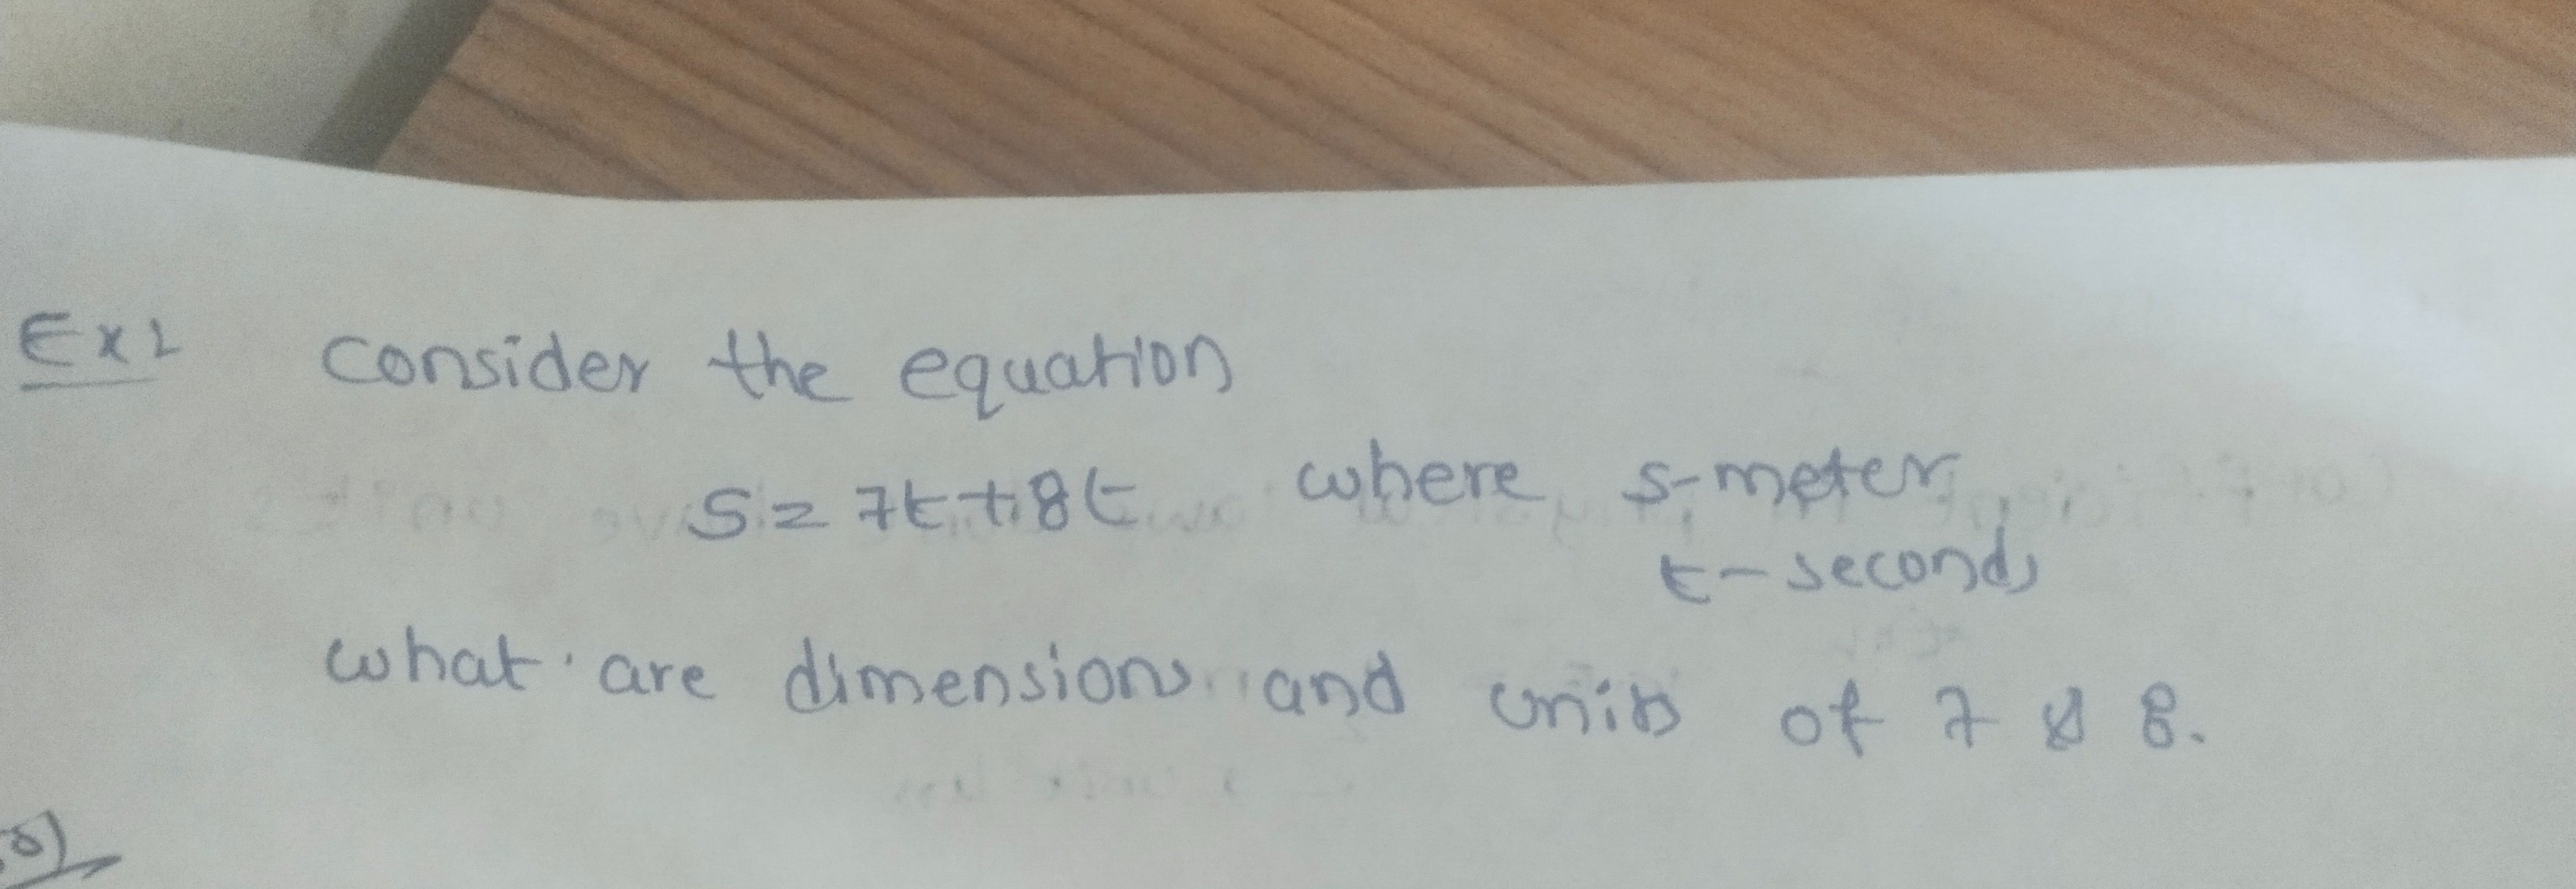 Ex:
consider the equation
S = 7t + 8t where s-meter,
t-second,
what are dimensions and units of 7 & 8.